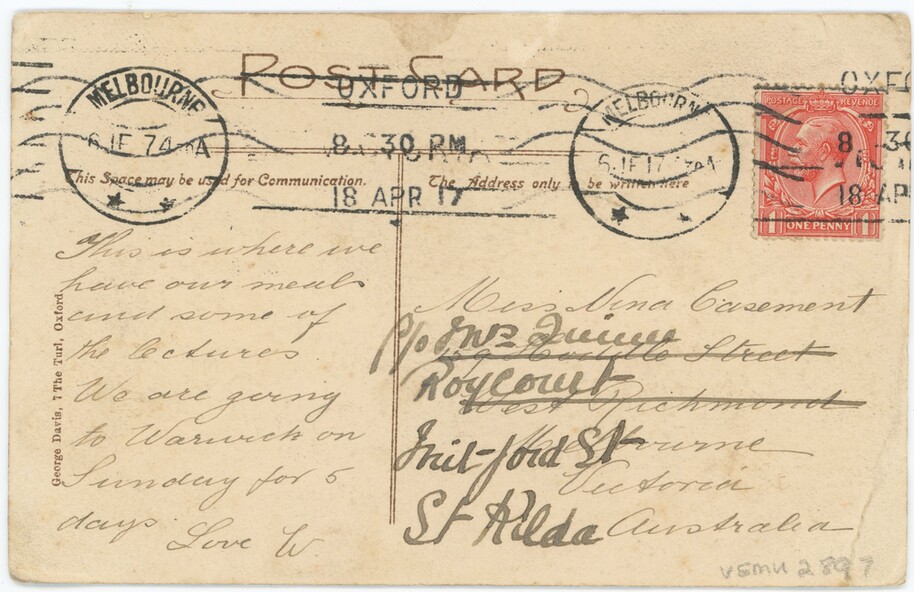 POST CARD
OXFORD
8. 30 PM
18 APR 17
MELBOURNE
MELBOURNE
OXFO
8 30
18 AP
POSTAGE REVENUE
1 ONE PENNY 1
This Space may be used for Communication.
The Address only to be written here
This is where we
have our meals
and some of
the lectures
We are going
to Warwick on
Sunday for 5
days
Love W.
George Davis, 7 The Turl, Oxford
Miss Nina Casement
Street
West Richmond
Melbourne
Victoria
Australia
Mrs Quinn
Roycourt
Mit-ford St
St Kilda
VSMU 2897